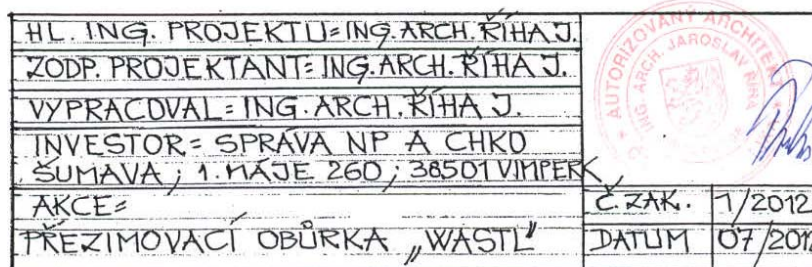 HL. ING. PROJEKTU = ING. ARCH. ŘÍHA J.
ZODP. PROJEKTANT = ING. ARCH. ŘÍHA J.
VYPRACOVAL = ING. ARCH. ŘÍHA J.
INVESTOR = SPRÁVA NP A CHKO
ŠUMAVA ; 1. MÁJE 260 ; 38501 VIMPERK
AKCE =
PŘEZIMOVACÍ OBŮRKA „WASTL"
Č. ZAK. 1/2012
DATUM 07/2012
AUTORIZOVANÝ ARCHITEKT
ING. ARCH. JAROSLAV ŘÍHA